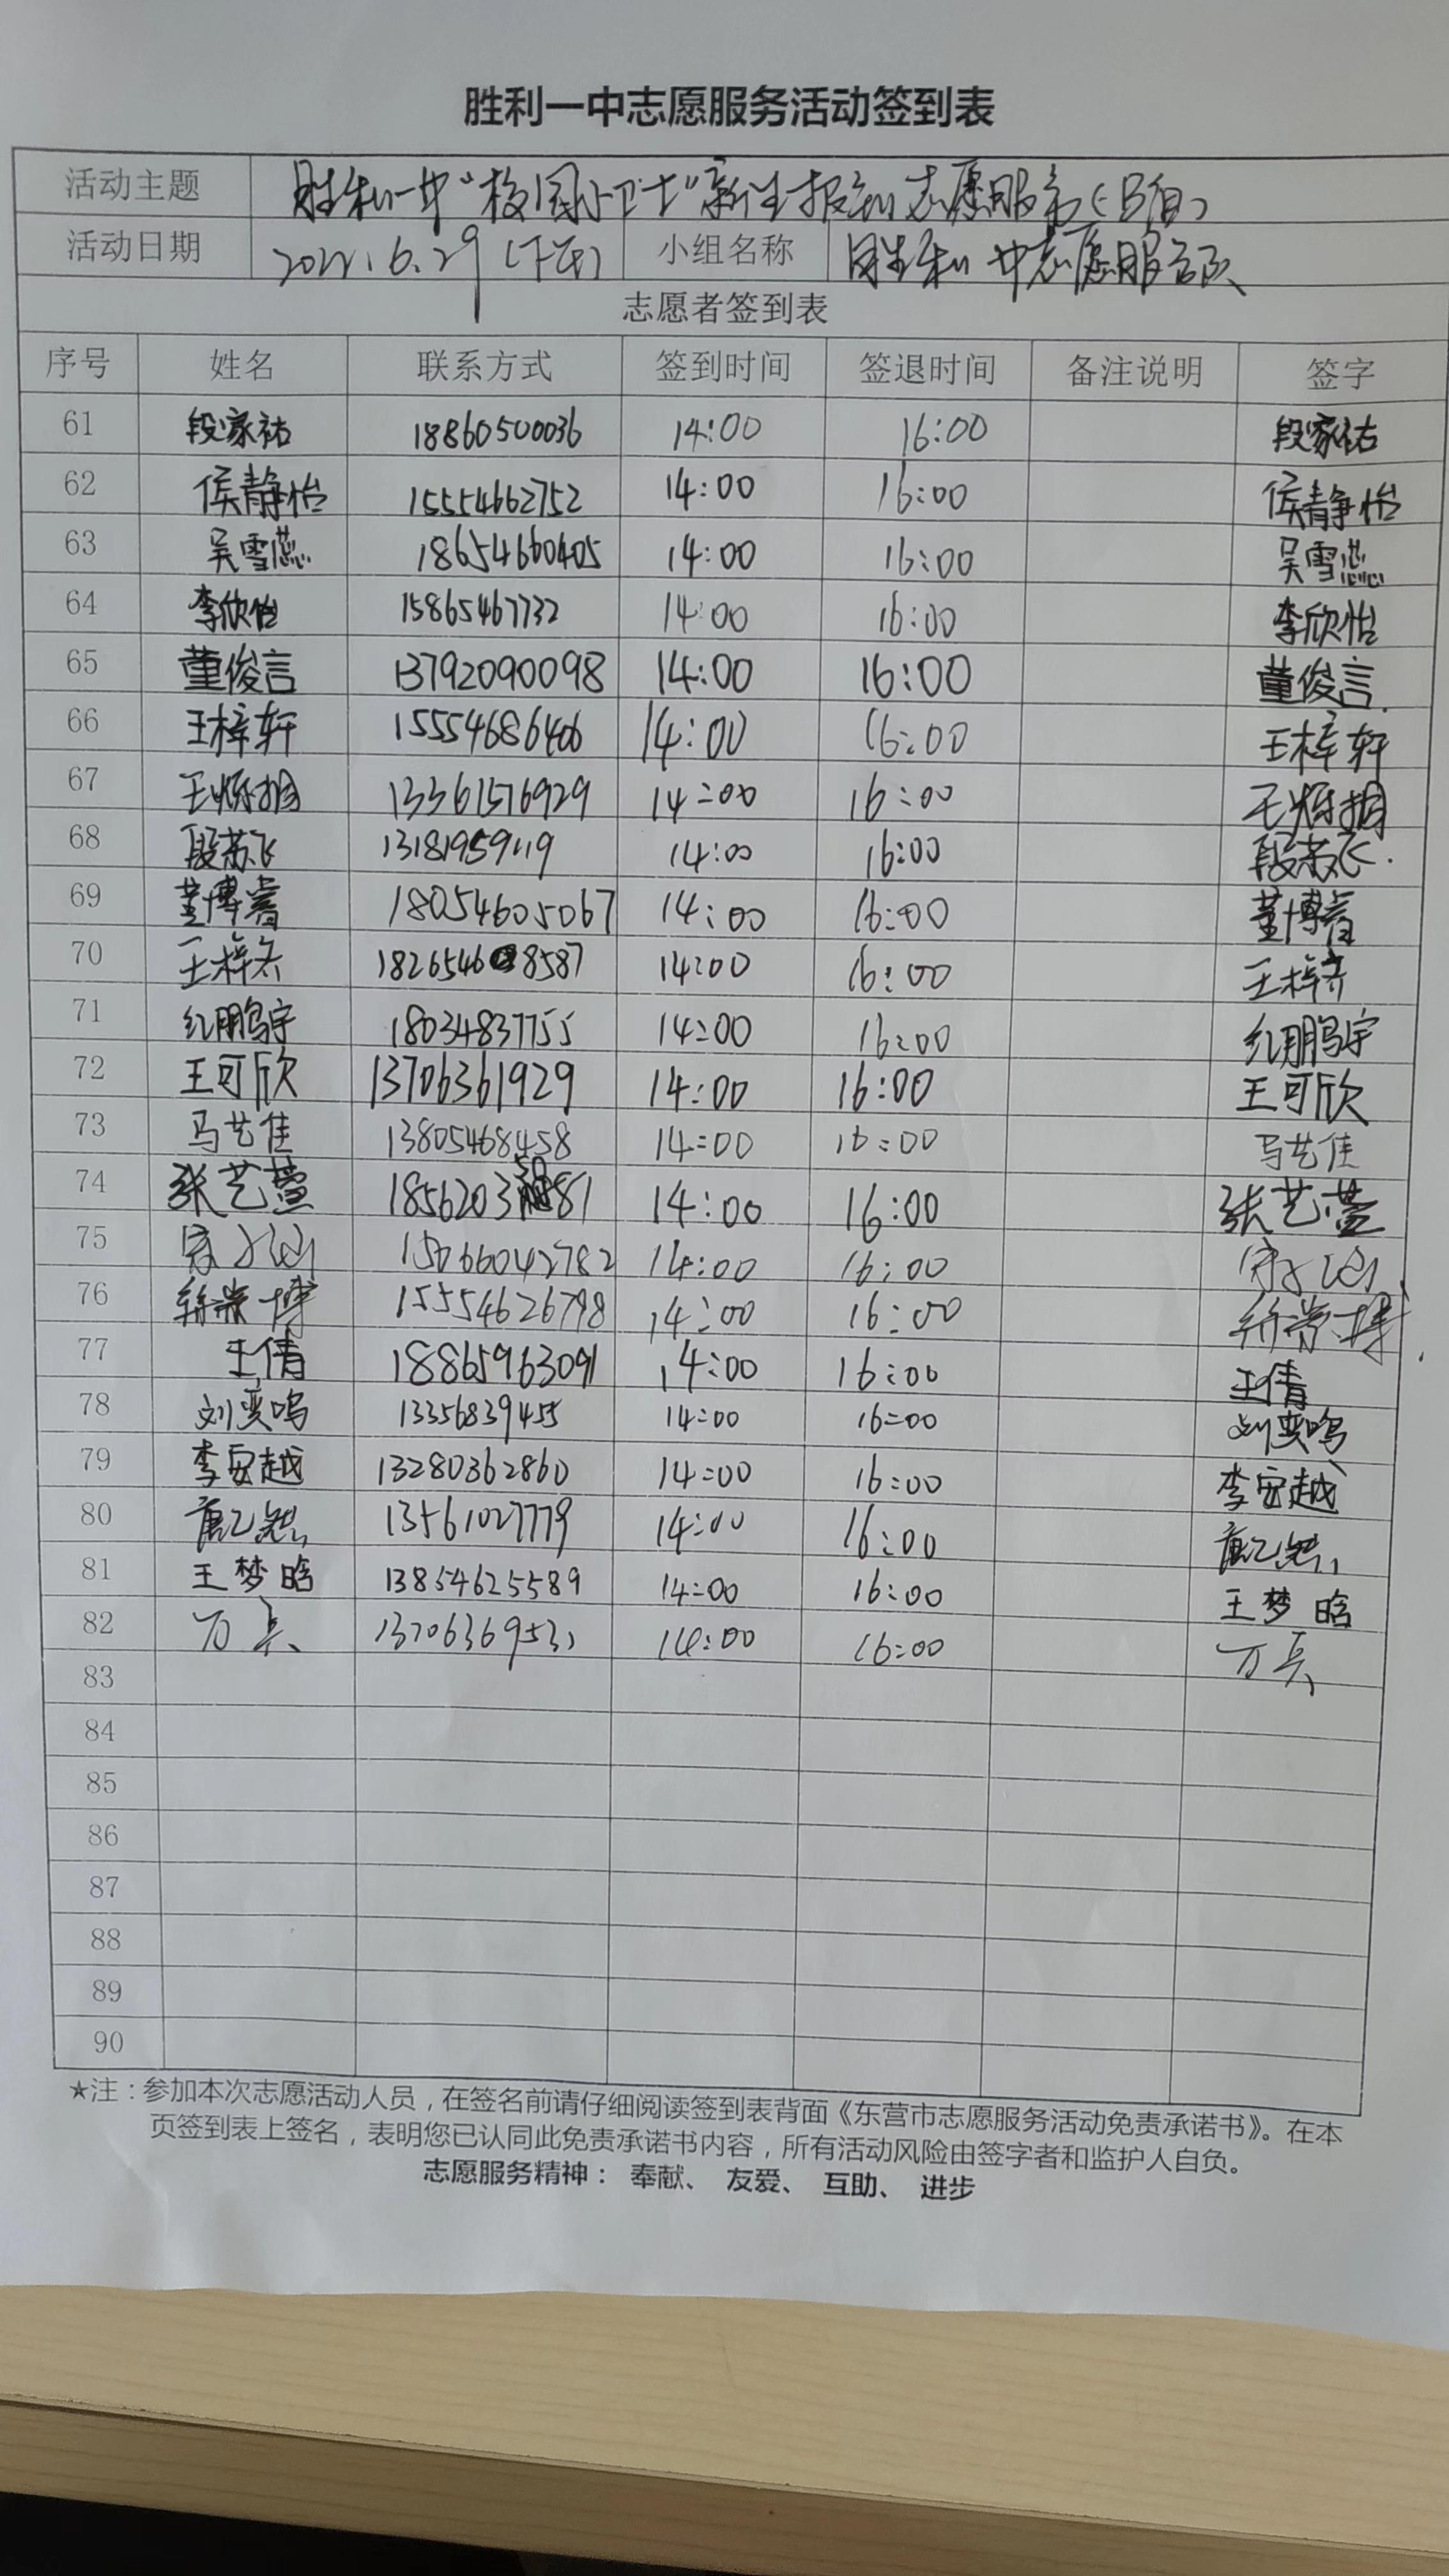 胜利一中志愿服务活动签到表
活动主题 胜利一中“校园小卫士”新生报到志愿服务
活动日期 2022.6.29(下午) 小组名称 胜利一中志愿服务队
志愿者签到表
序号 姓名 联系方式 签到时间 签退时间 备注说明 签字
61 段家祐 18860500036 14:00 16:00 段家祐
62 侯静怡 15554662752 14:00 16:00 侯静怡
63 吴雪蕊 18654660405 14:00 16:00 吴雪蕊
64 李欣怡 15865467732 14:00 16:00 李欣怡
65 董俊言 13792090098 14:00 16:00 董俊言
66 王梓轩 15554686406 14:00 16:00 王梓轩
67 13361576929 14:00 16:00
68 段苏飞 14:00 16:00 段苏飞
69 董博睿 18054605067 14:00 16:00 董博睿
70 王梓齐 14:00 16:00 王梓齐
71 纪鹏宇 18034837755 14:00 16:00 纪鹏宇
72 王可欣 13706361929 14:00 16:00 王可欣
73 马艺佳 13805468458 14:00 16:00 马艺佳
74 张艺萱 14:00 16:00 张艺萱
75 15066042782 14:00 16:00
76 15554626798 14:00 16:00
77 王倩 18865963091 14:00 16:00 王倩
78 刘奕鸣 13356839455 14:00 16:00 刘奕鸣
79 李安越 13280362860 14:00 16:00 李安越
80 13561027779 14:00 16:00
81 王梦晗 13854625589 14:00 16:00 王梦晗
82 13706369531 14:00 16:00
83
84
85
86
87
88
89
90
★注：参加本次志愿活动人员，在签名前请仔细阅读签到表背面《东营市志愿服务活动免责承诺书》。在本
页签到表上签名，表明您已认同此免责承诺书内容，所有活动风险由签字者和监护人自负。
志愿服务精神： 奉献、 友爱、 互助、 进步